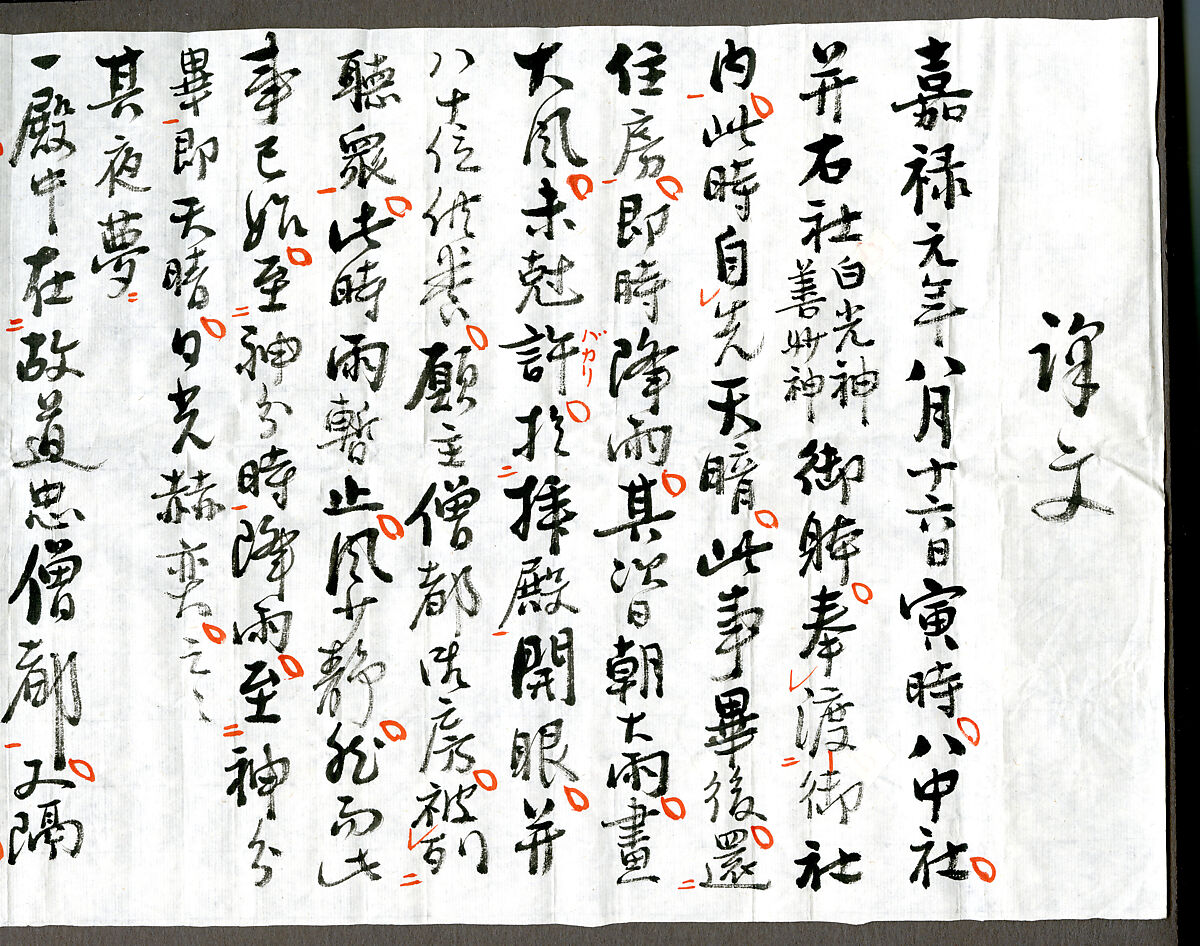 譯文
嘉禄元年八月十六日寅時八中社
并右社白光神善妙神御躰奉渡御社
内此時自先天暗此事畢後還
住房即時降雨其次日朝大雨畫
大風未尅許バカリ於拝殿開眼并
八十位供養願主僧都御房被列
聽衆此時雨暫止風少静然而此
事已始至神分時降雨至神分
畢即天晴日光赫奕云々
其夜夢
一殿中在故道忠僧都又隔